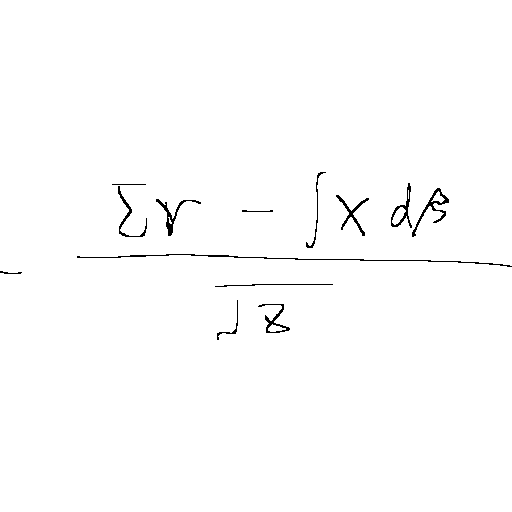 - \frac{\sum r - \int x d\beta}{\sqrt{z}}